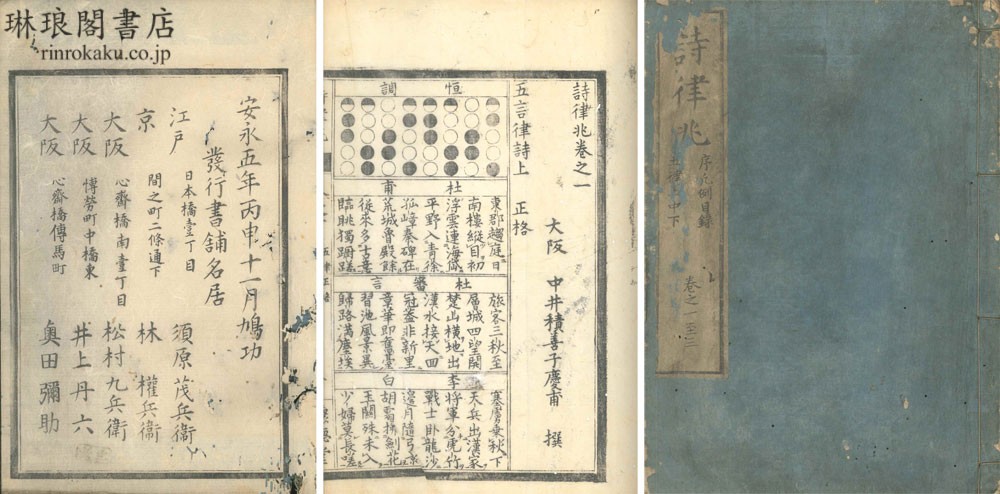 琳琅閣書店
rinrokaku.co.jp
安永五年丙申十一月鳩功
發行書舗名居
江戸 日本橋壹丁目 須原茂兵衞
京 間之町二條通下 林權兵衞
大阪 心齋橋南壹丁目 松村九兵衛
大阪 博勞町中橋東 井上丹六
大阪 心齋橋傳馬町 奥田彌助
詩律兆卷之一
大阪 中井積善子慶甫 撰
五言律詩上 正格
恒調
杜甫
東郡趨庭日
南樓縱目初
浮雲連海岱
平野入青徐
孤嶂秦碑在
荒城魯殿餘
從來多古意
臨眺獨躊躇
杜審言
旅客三秋至
層城四望開
楚山橫地出
漢水接天回
冠蓋非新里
章華即舊臺
習池風景異
歸路滿塵埃
李白
塞虜乘秋下
天兵出漢家
將軍分虎竹
戰士臥龍沙
邊月隨弓影
胡霜拂劍花
玉關殊未入
少婦莫長嗟
詩律兆
序凡例目錄
卷之一至三